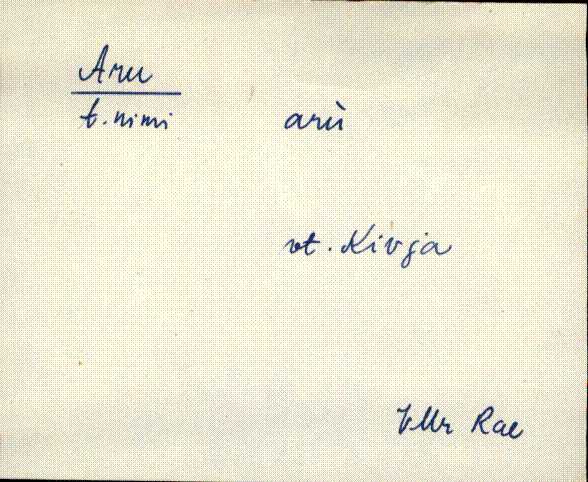 Aru
t. nimi arù
vt. Kivja
VMr Rae